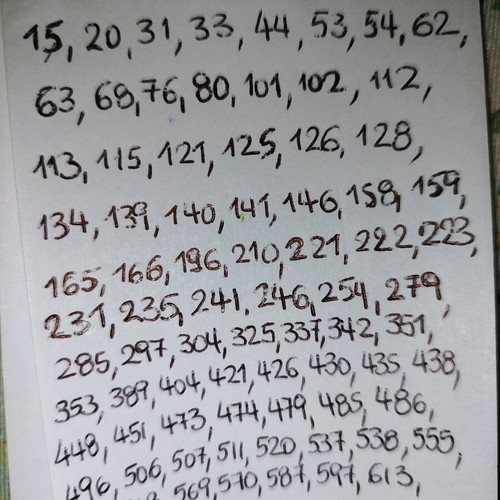 15, 20, 31, 33, 44, 53, 54, 62,
63, 69, 76, 80, 101, 102, 112,
113, 115, 121, 125, 126, 128,
134, 139, 140, 141, 146, 158, 159,
165, 166, 196, 210, 221, 222, 223,
231, 235, 241, 246, 254, 279,
285, 297, 304, 325, 337, 342, 351,
353, 389, 404, 421, 426, 430, 435, 438,
448, 451, 473, 474, 479, 485, 486,
496, 506, 507, 511, 520, 537, 538, 555,
569, 570, 587, 597, 613,